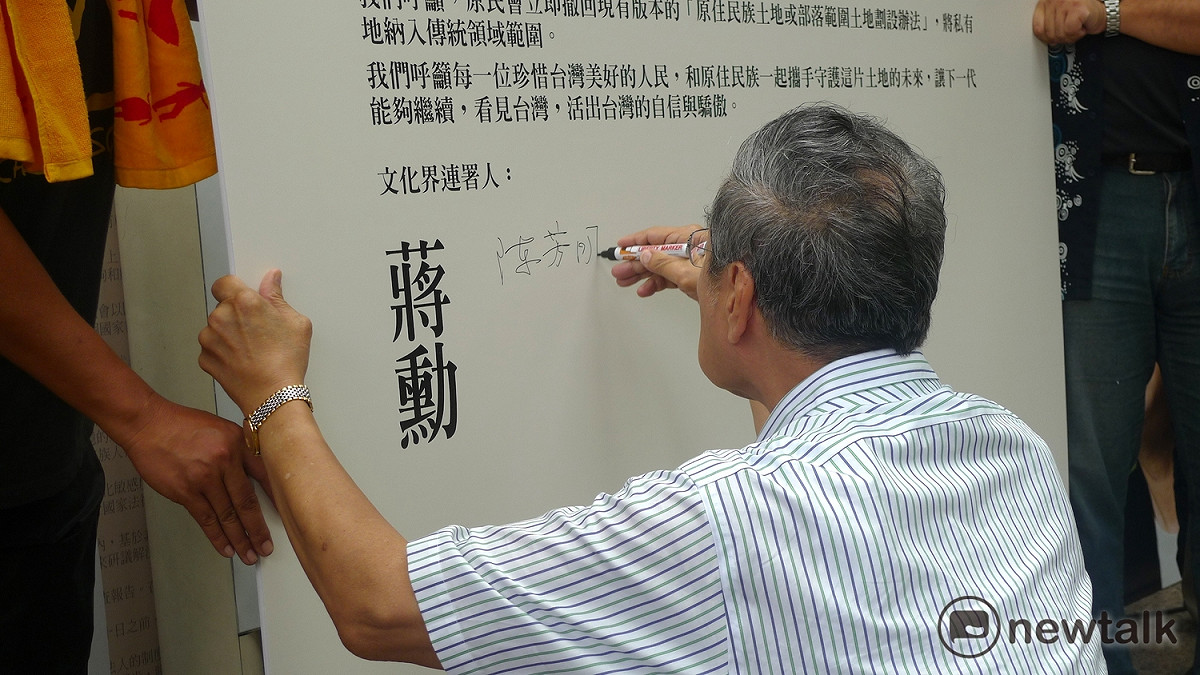 我們呼籲，原民會立即撤回現有版本的「原住民族土地或部落範圍土地劃設辦法」，將私有
地納入傳統領域範圍。
我們呼籲每一位珍惜台灣美好的人民，和原住民族一起攜手守護這片土地的未來，讓下一代
能夠繼續，看見台灣，活出台灣的自信與驕傲。
文化界連署人：
蔣勳
陈芳明
MARKER
newtalk